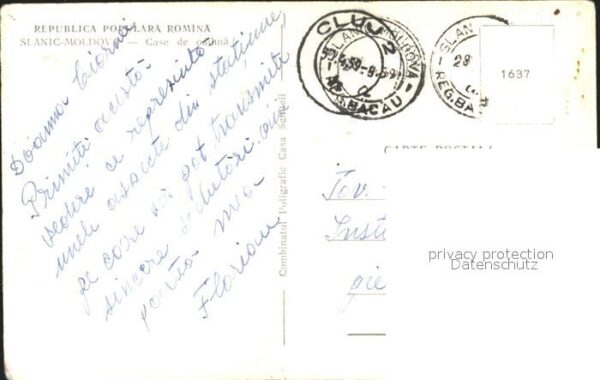 REPUBLICA POPULARA ROMÎNA
SLANIC-MOLDOVA — Case de odihnă
Doamna
Primiți această
vedere ce reprezintă
unele aspecte din stațiune,
pe care vă pot transmite
sincere
poarta mea
Florian
Combinatul Poligrafic Casa Scînteii
CLUJ 2
SLANIC MOLDOVA
BACAU
SLAN
28
REG.BA
1637
CARTE POSTALA
Tov.
Inst
gie
privacy protection
Datenschutz